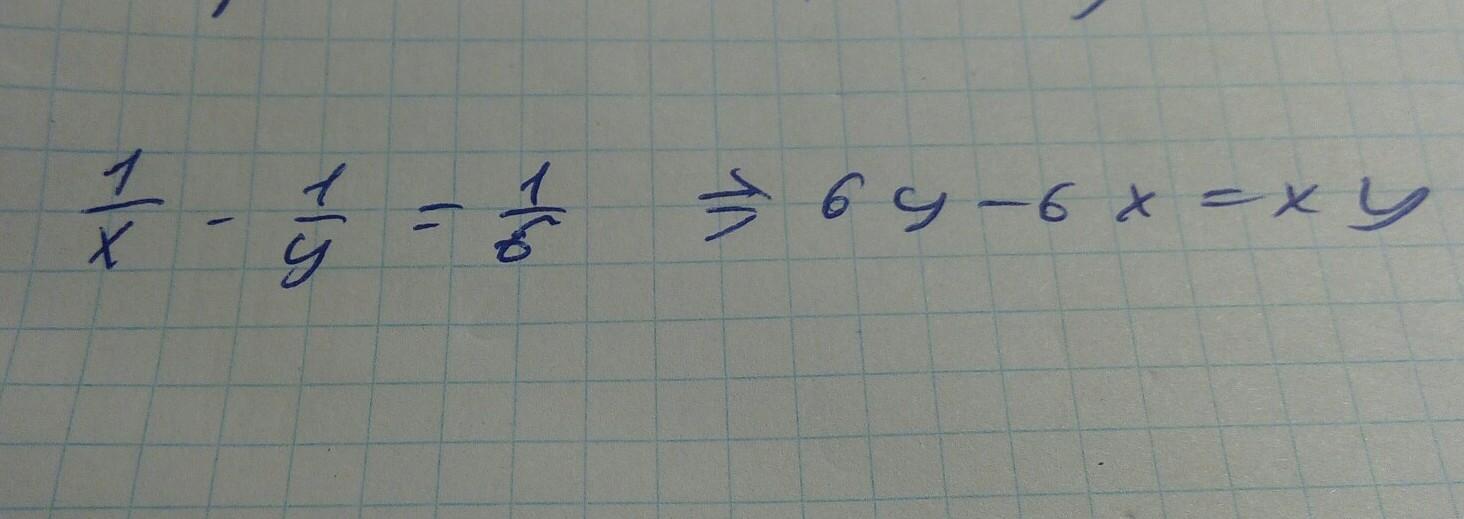 1/x - 1/y = 1/6 ⇒ 6y - 6x = xy